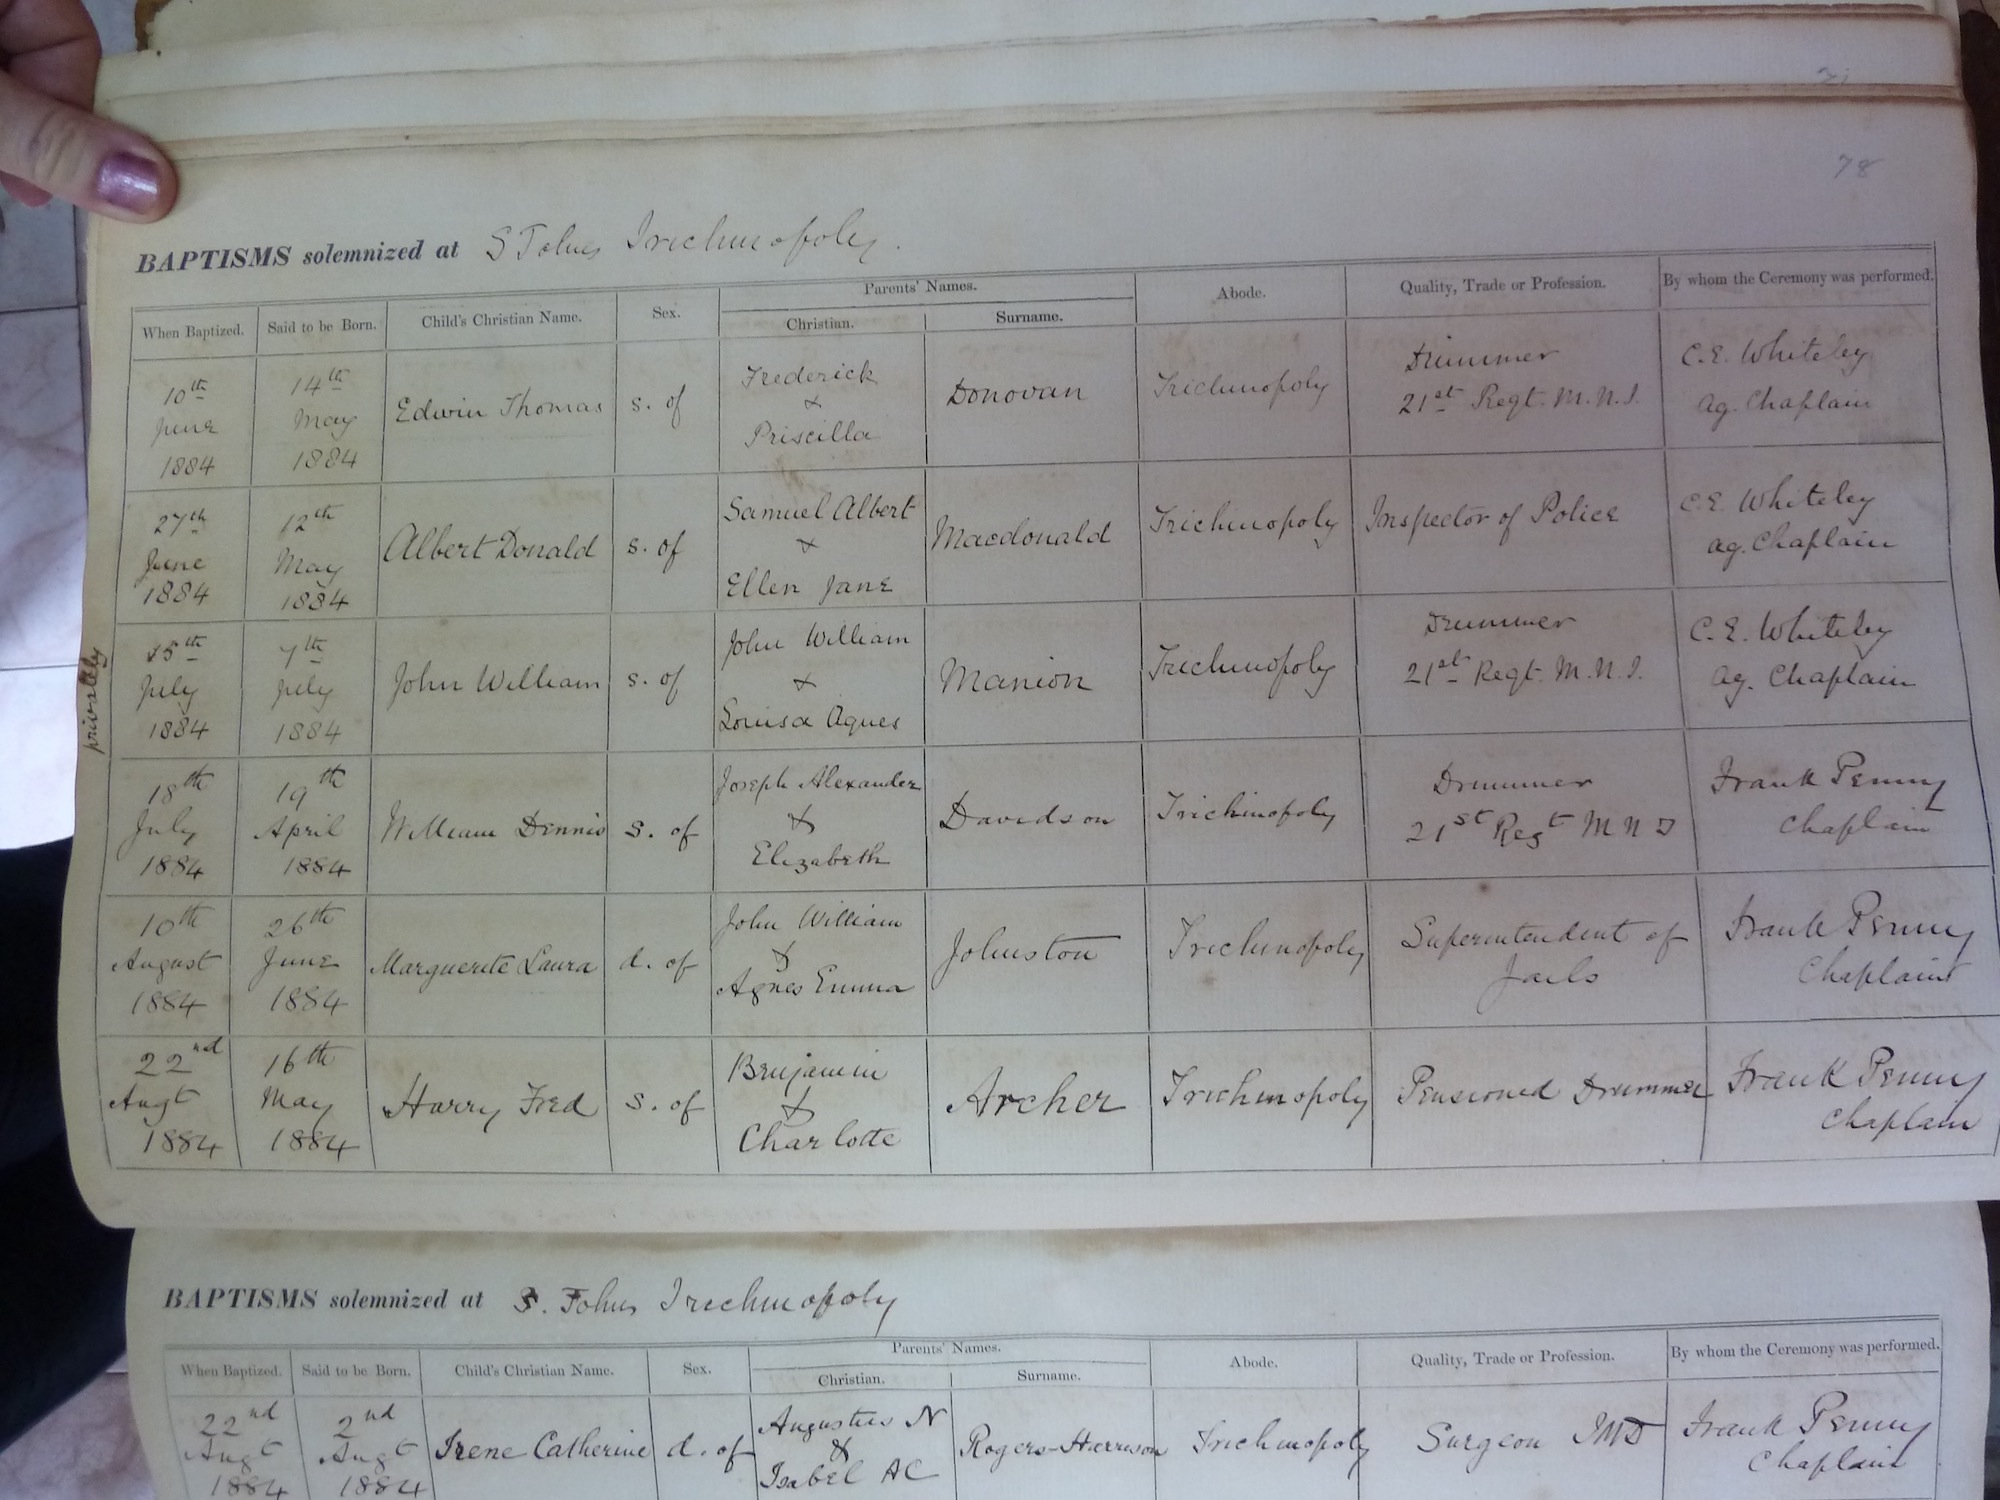 78
BAPTISMS solemnized at St Johns Trichinopoly.
When Baptized. Said to be Born. Child's Christian Name. Sex. Parents' Names. Christian. Surname. Abode. Quality, Trade or Profession. By whom the Ceremony was performed.
10th June 1884 14th May 1884 Edwin Thomas s. of Frederick & Priscilla Donovan Trichinopoly Drummer 21st Regt. M.N.I. C.E. Whiteley ag. Chaplain
27th June 1884 12th May 1884 Albert Donald s. of Samuel Albert & Ellen Jane Macdonald Trichinopoly Inspector of Police C.E. Whiteley ag. Chaplain
privately 15th July 1884 7th July 1884 John William s. of John William & Louisa Agnes Manion Trichinopoly Drummer 21st Regt. M.N.I. C.E. Whiteley Ag. Chaplain
18th July 1884 19th April 1884 William Dennis s. of Joseph Alexander & Elizabeth Davidson Trichinopoly Drummer 21st Regt M N I Frank Penny Chaplain
10th August 1884 26th June 1884 Marguerite Laura d. of John William & Agnes Emma Johnston Trichinopoly Superintendent of Jails Frank Penny Chaplain
22nd Augt 1884 16th May 1884 Harry Fred s. of Benjamin & Charlotte Archer Trichinopoly Pensioned Drummer Frank Penny Chaplain
BAPTISMS solemnized at S. Johns Trichinopoly
When Baptized. Said to be Born. Child's Christian Name. Sex. Parents' Names. Christian. Surname. Abode. Quality, Trade or Profession. By whom the Ceremony was performed.
22nd Augt 1884 2nd Augt 1884 Irene Catherine d. of Augustus N & Isabel AC Rogers-Harrison Trichinopoly Surgeon IMD Frank Penny Chaplain